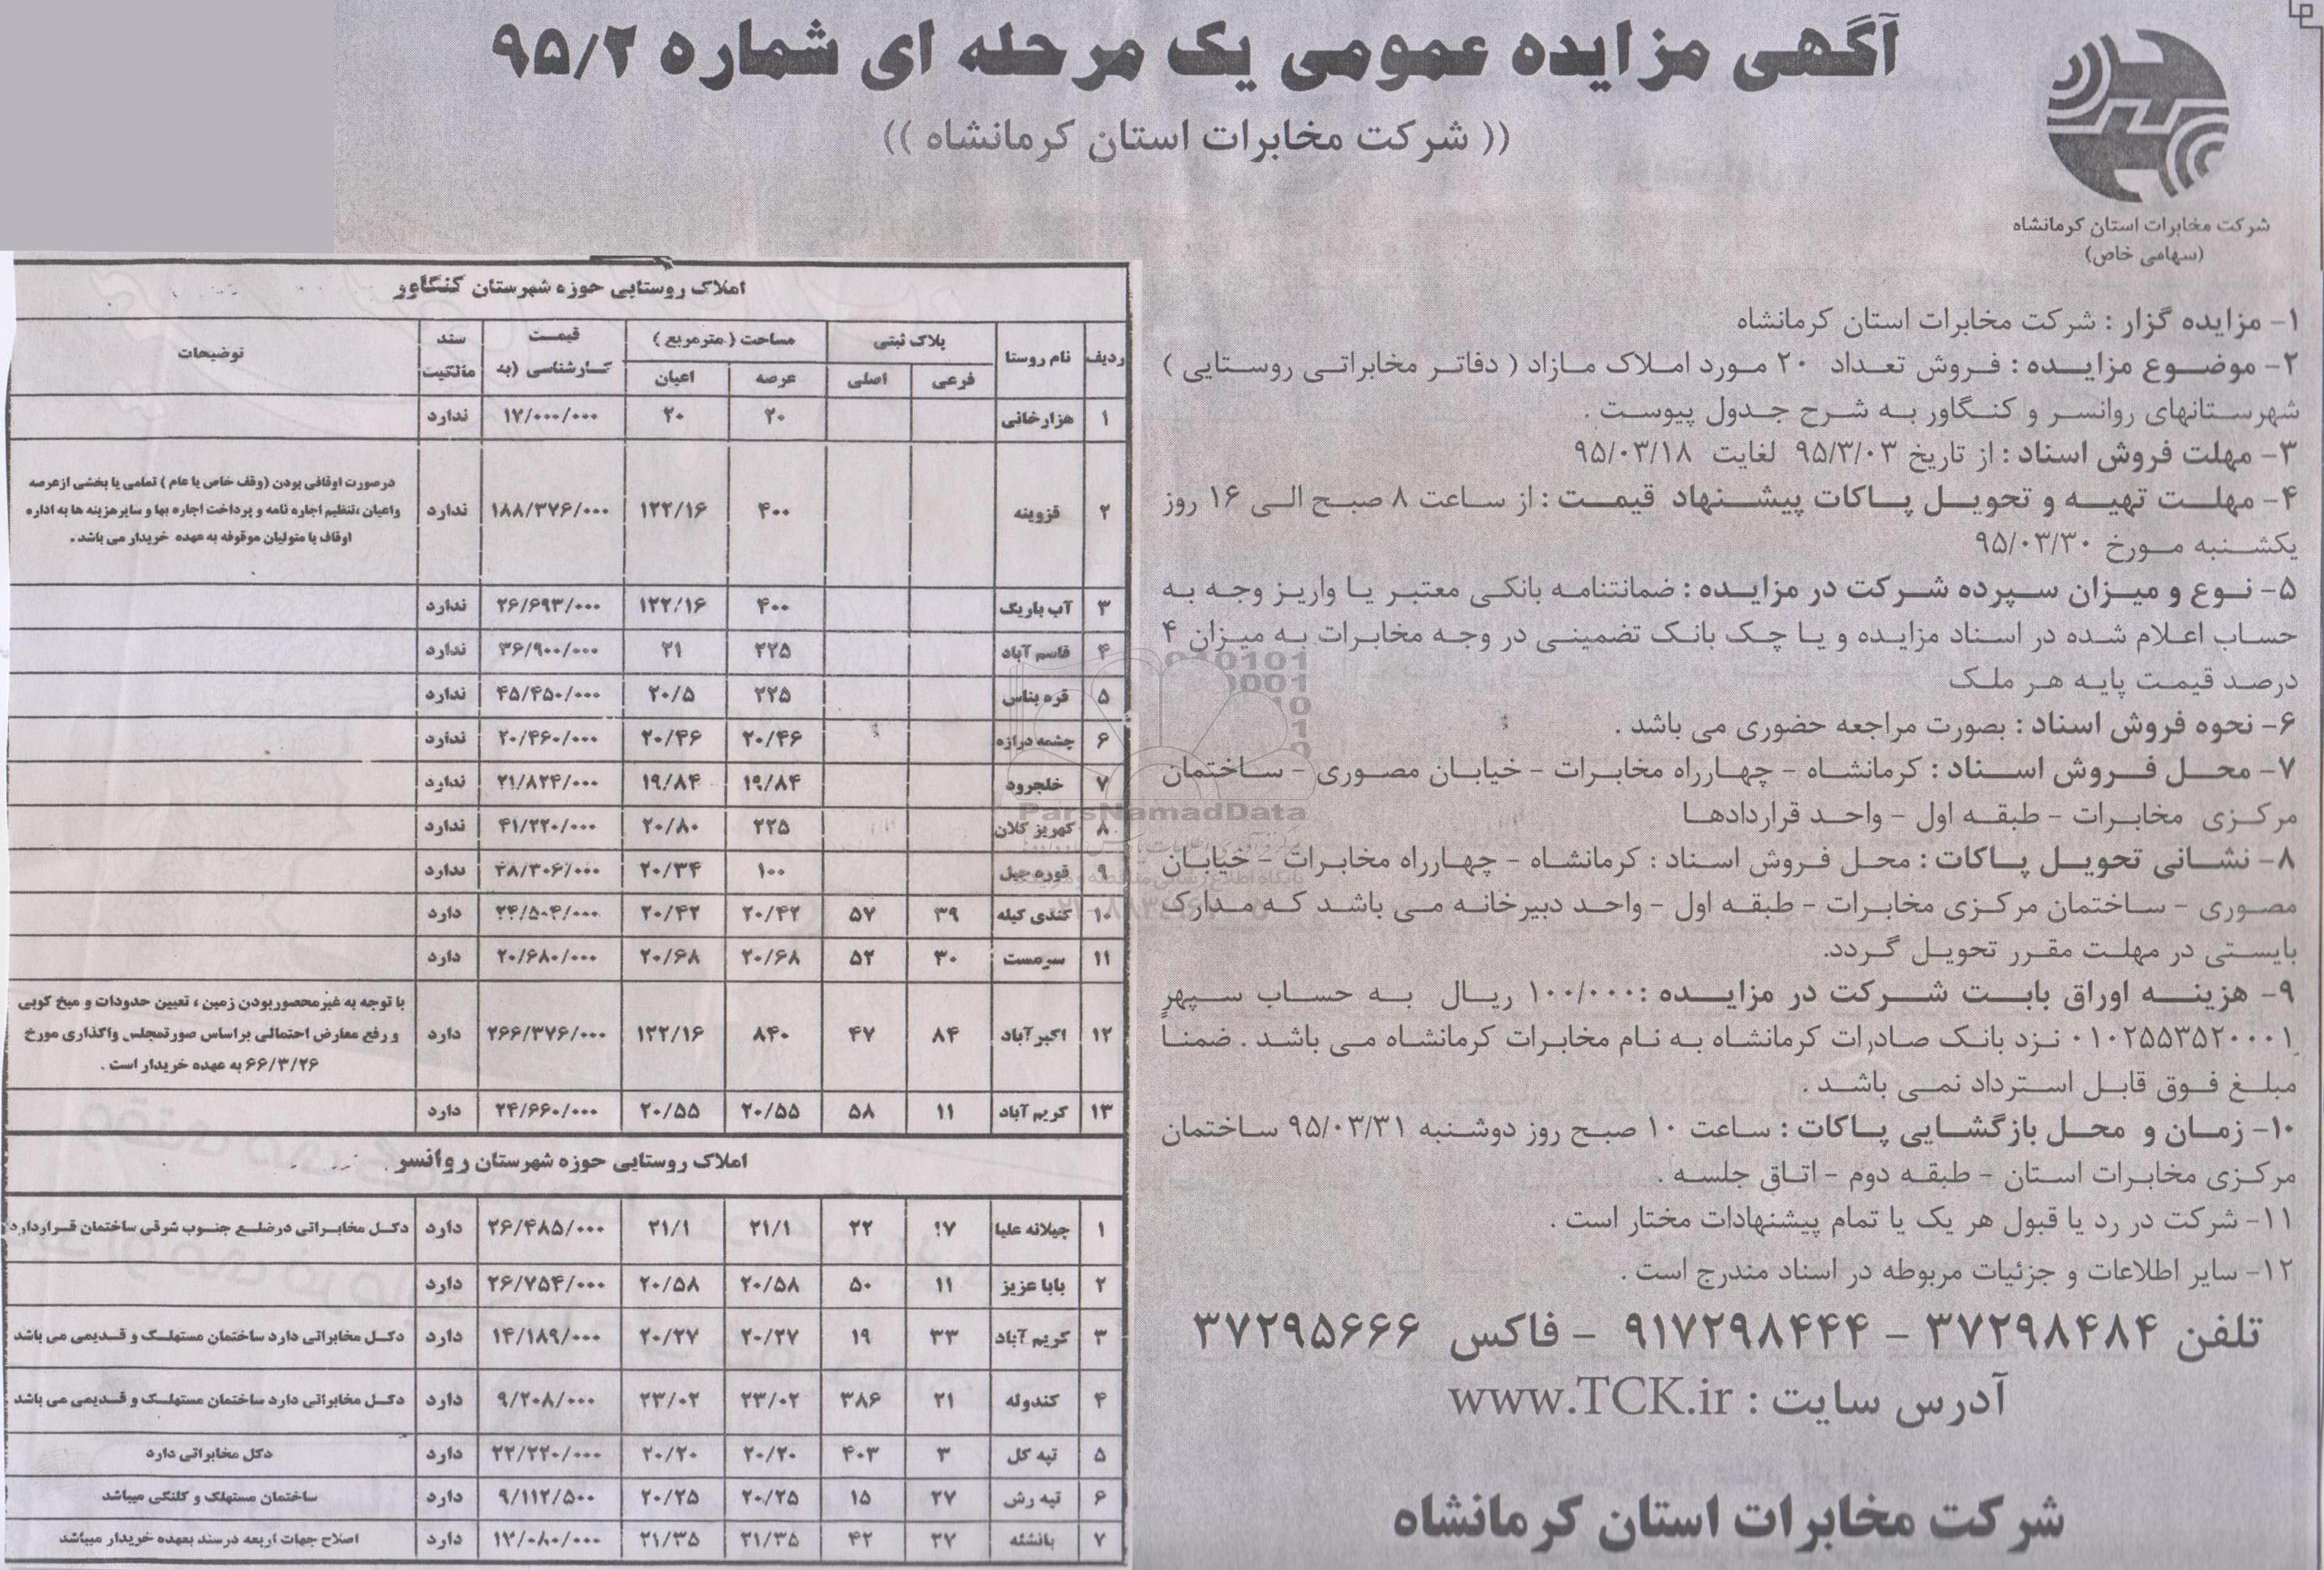 آگهی مزایده عمومی یک مرحله ای شماره ۹۵/۲
(( شرکت مخابرات استان کرمانشاه ))
شرکت مخابرات استان کرمانشاه
(سهامی خاص)
۱- مزایده گزار : شرکت مخابرات استان کرمانشاه
۲- موضوع مزایده : فروش تعداد ۲۰ مورد املاک مازاد ( دفاتر مخابراتی روستایی )
شهرستانهای روانسر و کنگاور به شرح جدول پیوست .
۳- مهلت فروش اسناد : از تاریخ ۹۵/۳/۰۳ لغایت ۹۵/۰۳/۱۸
۴- مهلت تهیه و تحویل پاکات پیشنهاد قیمت : از ساعت ۸ صبح الی ۱۶ روز
یکشنبه مورخ ۹۵/۰۳/۳۰
۵- نوع و میزان سپرده شرکت در مزایده : ضمانتنامه بانکی معتبر یا واریز وجه به
حساب اعلام شده در اسناد مزایده و یا چک بانک تضمینی در وجه مخابرات به میزان ۴
درصد قیمت پایه هر ملک
۶- نحوه فروش اسناد : بصورت مراجعه حضوری می باشد .
۷- محل فروش اسناد : کرمانشاه - چهارراه مخابرات - خیابان مصوری - ساختمان
مرکزی مخابرات - طبقه اول - واحد قراردادها
۸- نشانی تحویل پاکات : محل فروش اسناد : کرمانشاه - چهارراه مخابرات - خیابان
مصوری - ساختمان مرکزی مخابرات - طبقه اول - واحد دبیرخانه می باشد که مدارک
بایستی در مهلت مقرر تحویل گردد.
۹- هزینه اوراق بابت شرکت در مزایده : ۱۰۰/۰۰۰ ریال به حساب سپهر
۰۱۰۲۵۵۳۵۲۰۰۰۱ نزد بانک صادرات کرمانشاه به نام مخابرات کرمانشاه می باشد . ضمنا
مبلغ فوق قابل استرداد نمی باشد .
۱۰- زمان و محل بازگشایی پاکات : ساعت ۱۰ صبح روز دوشنبه ۹۵/۰۳/۳۱ ساختمان
مرکزی مخابرات استان - طبقه دوم - اتاق جلسه .
۱۱- شرکت در رد یا قبول هر یک یا تمام پیشنهادات مختار است .
۱۲- سایر اطلاعات و جزئیات مربوطه در اسناد مندرج است .
تلفن ۳۷۲۹۸۴۸۴ - ۹۱۷۲۹۸۴۴۴ - فاکس ۳۷۲۹۵۶۶۶
آدرس سایت : www.TCK.ir
شرکت مخابرات استان کرمانشاه
املاک روستایی حوزه شهرستان کنگاور
ردیف نام روستا پلاک ثبتی مساحت ( مترمربع ) قیمت کارشناسی (به سند مالکیت توضیحات
فرعی اصلی عرصه اعیان
۱ هزارخانی ۲۰ ۲۰ ۱۷/۰۰۰/۰۰۰ ندارد
۲ قزوینه ۴۰۰ ۱۲۲/۱۶ ۱۸۸/۳۷۶/۰۰۰ ندارد درصورت اوقافی بودن (وقف خاص یا عام ) تمامی یا بخشی ازعرصه
واعیان ،تنظیم اجاره نامه و پرداخت اجاره بها و سایرهزینه ها به اداره
اوقاف یا متولیان موقوفه به عهده خریدار می باشد .
۳ آب باریک ۴۰۰ ۱۲۲/۱۶ ۲۶/۶۹۳/۰۰۰ ندارد
۴ قاسم آباد ۲۲۵ ۲۱ ۳۶/۹۰۰/۰۰۰ ندارد
۵ قره بناس ۲۲۵ ۲۰/۵ ۴۵/۴۵۰/۰۰۰ ندارد
۶ چشمه درازه ۲۰/۴۶ ۲۰/۴۶ ۲۰/۴۶۰/۰۰۰ ندارد
۷ خلجرود ۱۹/۸۴ ۱۹/۸۴ ۲۱/۸۲۴/۰۰۰ ندارد
۸ کهریز کلان ۲۲۵ ۲۰/۸۰ ۴۱/۲۲۰/۰۰۰ ندارد
۹ قوره جیل ۱۰۰ ۲۰/۳۴ ۲۸/۳۰۶/۰۰۰ ندارد
۱۰ کندی کیله ۳۹ ۵۷ ۲۰/۴۲ ۲۰/۴۲ ۲۴/۵۰۴/۰۰۰ دارد
۱۱ سرمست ۳۰ ۵۲ ۲۰/۶۸ ۲۰/۶۸ ۲۰/۶۸۰/۰۰۰ دارد
۱۲ اکبر آباد ۸۴ ۴۷ ۸۴۰ ۱۲۲/۱۶ ۲۶۶/۳۷۶/۰۰۰ دارد با توجه به غیرمحصوربودن زمین ، تعیین حدودات و میخ کوبی
و رفع معارض احتمالی براساس صورتمجلس واگذاری مورخ
۶۶/۳/۲۶ به عهده خریدار است .
۱۳ کریم آباد ۱۱ ۵۸ ۲۰/۵۵ ۲۰/۵۵ ۲۴/۶۶۰/۰۰۰ دارد
املاک روستایی حوزه شهرستان روانسر
۱ جیلانه علیا ۱۷ ۲۲ ۲۱/۱ ۲۱/۱ ۲۶/۴۸۵/۰۰۰ دارد دکل مخابراتی درضلع جنوب شرقی ساختمان قراردارد
۲ بابا عزیز ۱۱ ۵۰ ۲۰/۵۸ ۲۰/۵۸ ۲۶/۷۵۴/۰۰۰ دارد
۳ کریم آباد ۳۳ ۱۹ ۲۰/۲۷ ۲۰/۲۷ ۱۴/۱۸۹/۰۰۰ دارد دکل مخابراتی دارد ساختمان مستهلک و قدیمی می باشد
۴ کندوله ۲۱ ۳۸۶ ۲۳/۰۲ ۲۳/۰۲ ۹/۲۰۸/۰۰۰ دارد دکل مخابراتی دارد ساختمان مستهلک و قدیمی می باشد
۵ تپه کل ۳ ۴۰۳ ۲۰/۲۰ ۲۰/۲۰ ۲۲/۲۲۰/۰۰۰ دارد دکل مخابراتی دارد
۶ تپه رش ۲۷ ۱۵ ۲۰/۲۵ ۲۰/۲۵ ۹/۱۱۲/۵۰۰ دارد ساختمان مستهلک و کلنگی میباشد
۷ بانشله ۲۷ ۴۲ ۲۱/۳۵ ۲۱/۳۵ ۱۷/۰۸۰/۰۰۰ دارد اصلاح جهات اربعه درسند بعهده خریدار میباشد
ParsNamadData